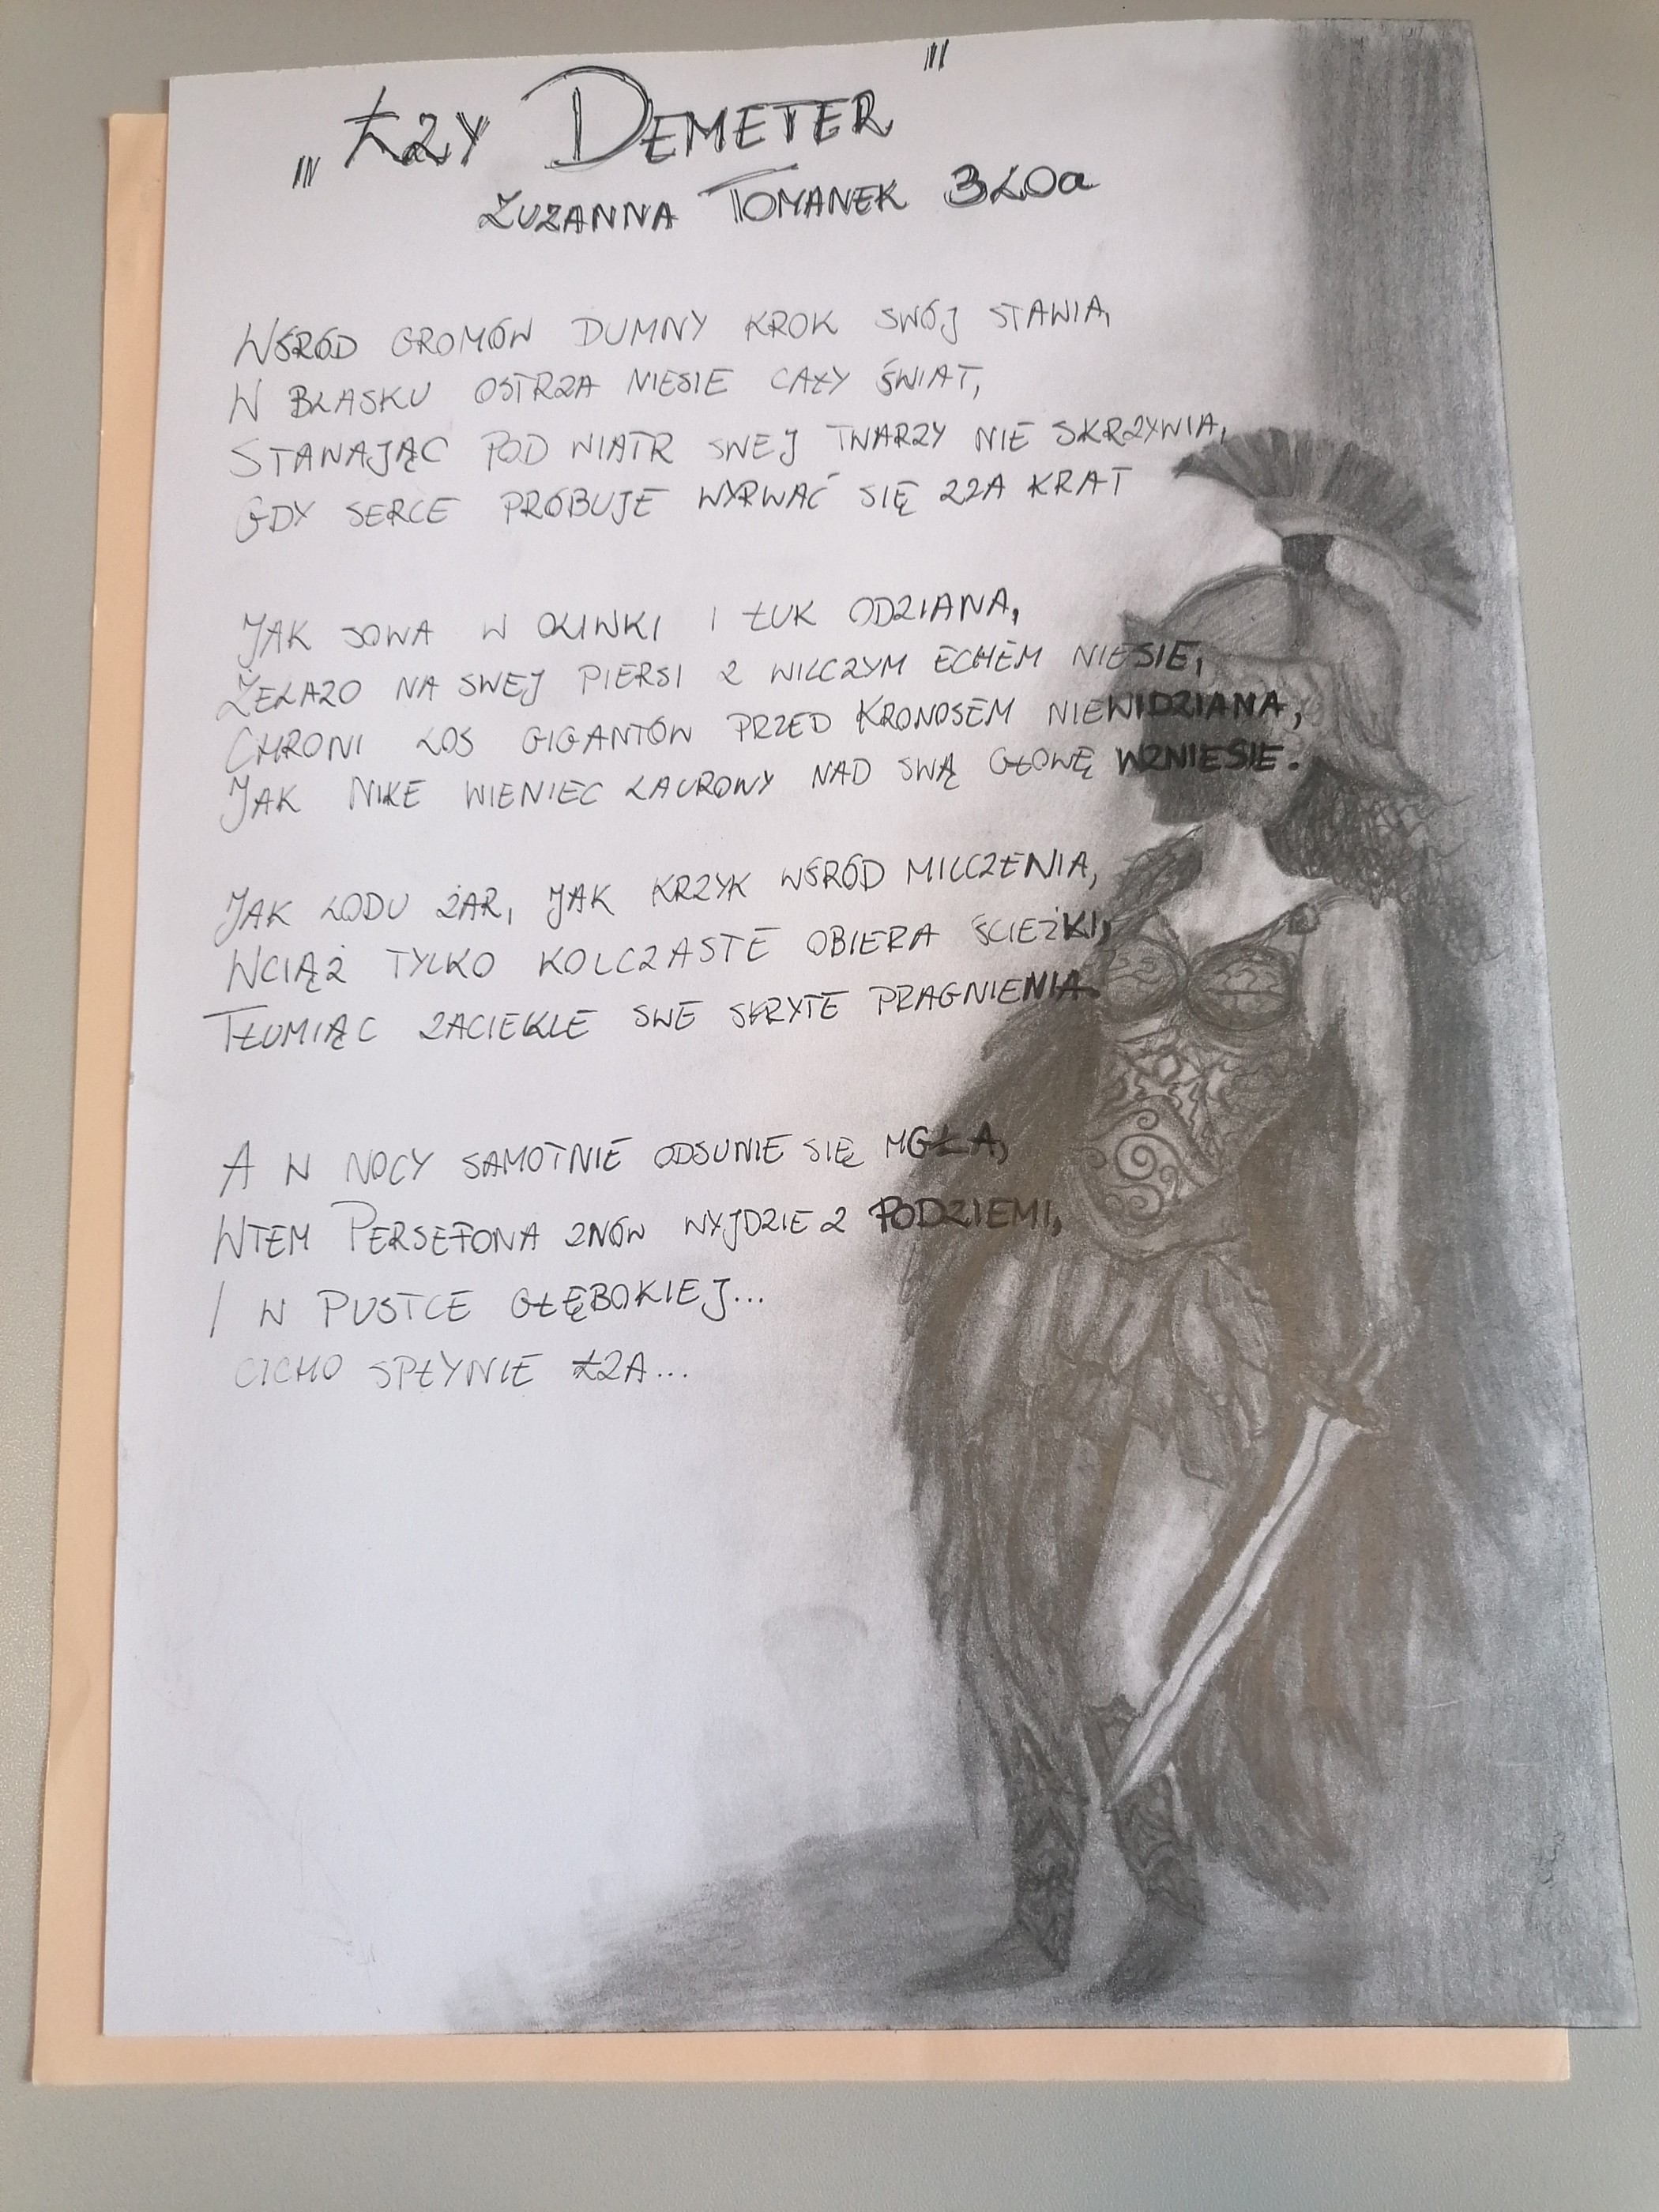 „ŁZY DEMETER"
ZUZANNA TOMANEK 3LOa
WŚRÓD GROMÓW DUMNY KROK SWÓJ STAWIA,
W BLASKU OSTRZA NIESIE CAŁY ŚWIAT,
STAWAJĄC POD WIATR SWEJ TWARZY NIE SKRZYWIA,
GDY SERCE PRÓBUJE WYRWAĆ SIĘ ZZA KRAT
JAK SOWA W OLIWKI I ŁUK ODZIANA,
ŻELAZO NA SWEJ PIERSI Z WILCZYM ECHEM NIESIE,
CHRONI LOS GIGANTÓW PRZED KRONOSEM NIEWIDZIANA,
JAK NIKE WIENIEC LAUROWY NAD SWĄ GŁOWĘ WZNIESIE.
JAK LODU ŻAR, JAK KRZYK WŚRÓD MILCZENIA,
WCIĄŻ TYLKO KOLCZASTE OBIERA ŚCIEŻKI,
TŁUMIĄC ZACIEKLE SWE SKRYTE PRAGNIENIA.
A W NOCY SAMOTNIE ODSUNIE SIĘ MGŁA,
WTEM PERSEFONA ZNÓW WYJDZIE Z PODZIEMI,
I W PUSTCE GŁĘBOKIEJ...
CICHO SPŁYNIE ŁZA...